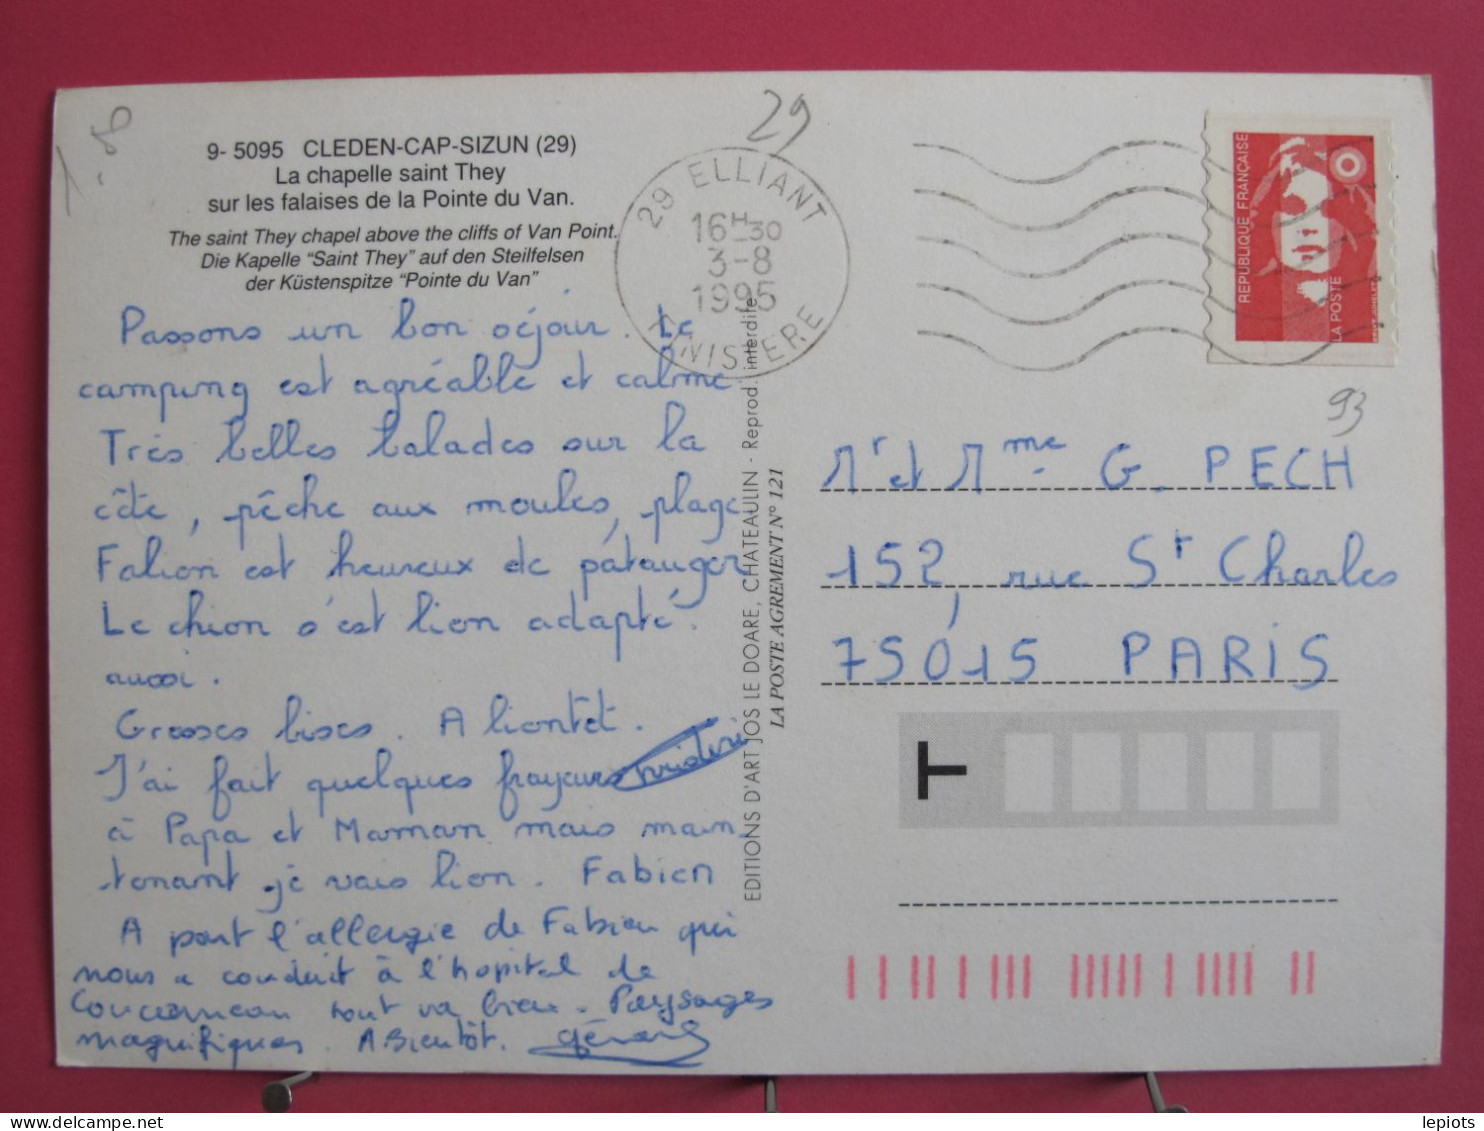 1-8
9- 5095 CLEDEN-CAP-SIZUN (29)
La chapelle saint They
sur les falaises de la Pointe du Van.
The saint They chapel above the cliffs of Van Point.
Die Kapelle "Saint They" auf den Steilfelsen
der Küstenspitze "Pointe du Van"
Passons un bon séjour. Le
camping est agréable et calme
Très belles balades sur la
côte, pêche aux moules, plage
Fabien est heureux de patauger
Le chien s'est bien adapté
aussi.
Grosses bises. A bientôt.
J'ai fait quelques frayeurs
à Papa et Maman mais main
tenant je vais bien. Fabien
A part l'allergie de Fabien qui
nous a conduit à l'hopital de
Concarneau tout va bien. Paysages
magnifiques. A Bientôt. Gérard
29
29 ELLIANT
16H30
3-8
1995
FINISTERE
EDITIONS D'ART JOS LE DOARE, CHATEAULIN - Reprod. interdite
LA POSTE AGREMENT N° 121
REPUBLIQUE FRANÇAISE
LA POSTE
93
Mr et Mme G. PECH
152, rue St Charles
75015 PARIS
T
lepiots